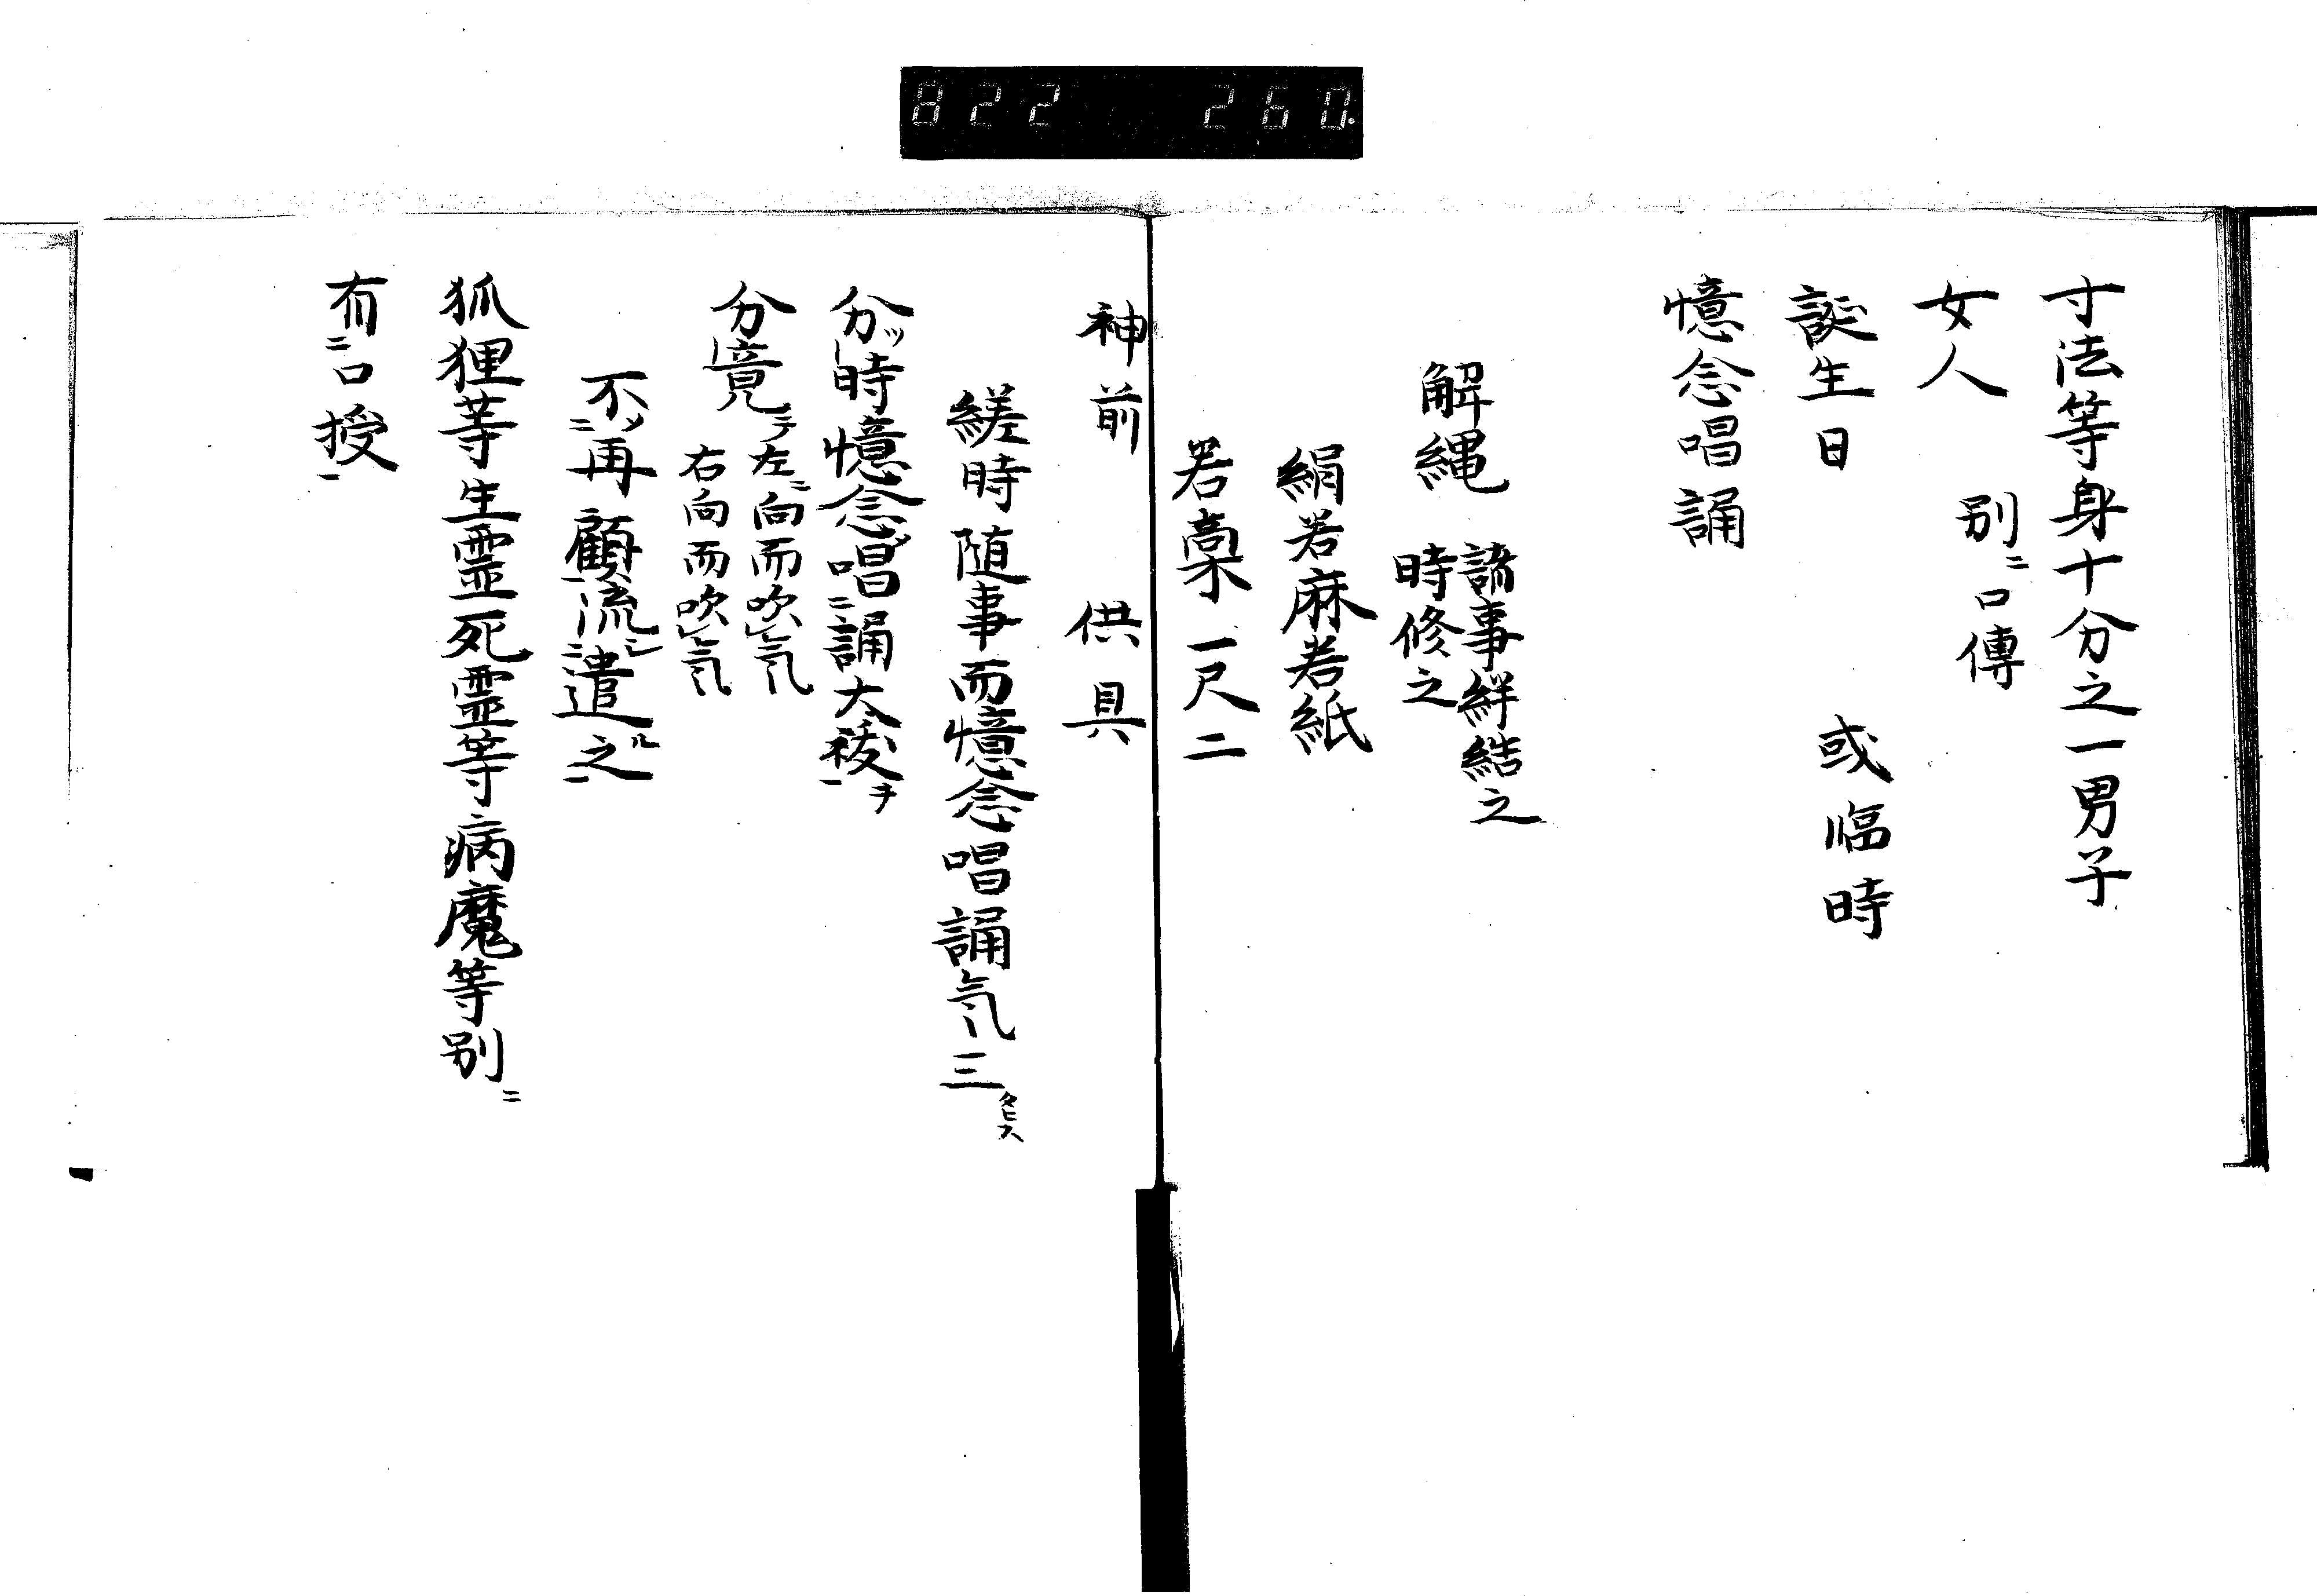 822 260.
寸法等身十分之一男子
女人 別ニ口傳
誕生日 或臨時
憶念唱誦
解縄 諸事絆結之
時修之
絹若麻若紙
若稾一尺二
神前 供具
縒時随事而憶念唱誦気三タヒス
分ツ時憶念唱誦大祓ヲ
分竟テ左ニ向而吹気
右向而吹気
不再顧流遣ル之
狐狸等生霊死霊等病魔等別ニ
有口授